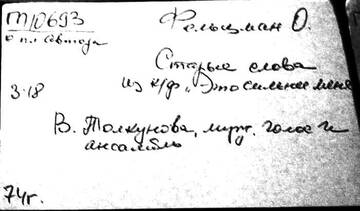 М10693
Фельцман О.
с пл. автора
Старые слова
из к/ф „Это сильнее меня
3-18
В. Толкунова, мирт. голос и
ансамбль
74г.